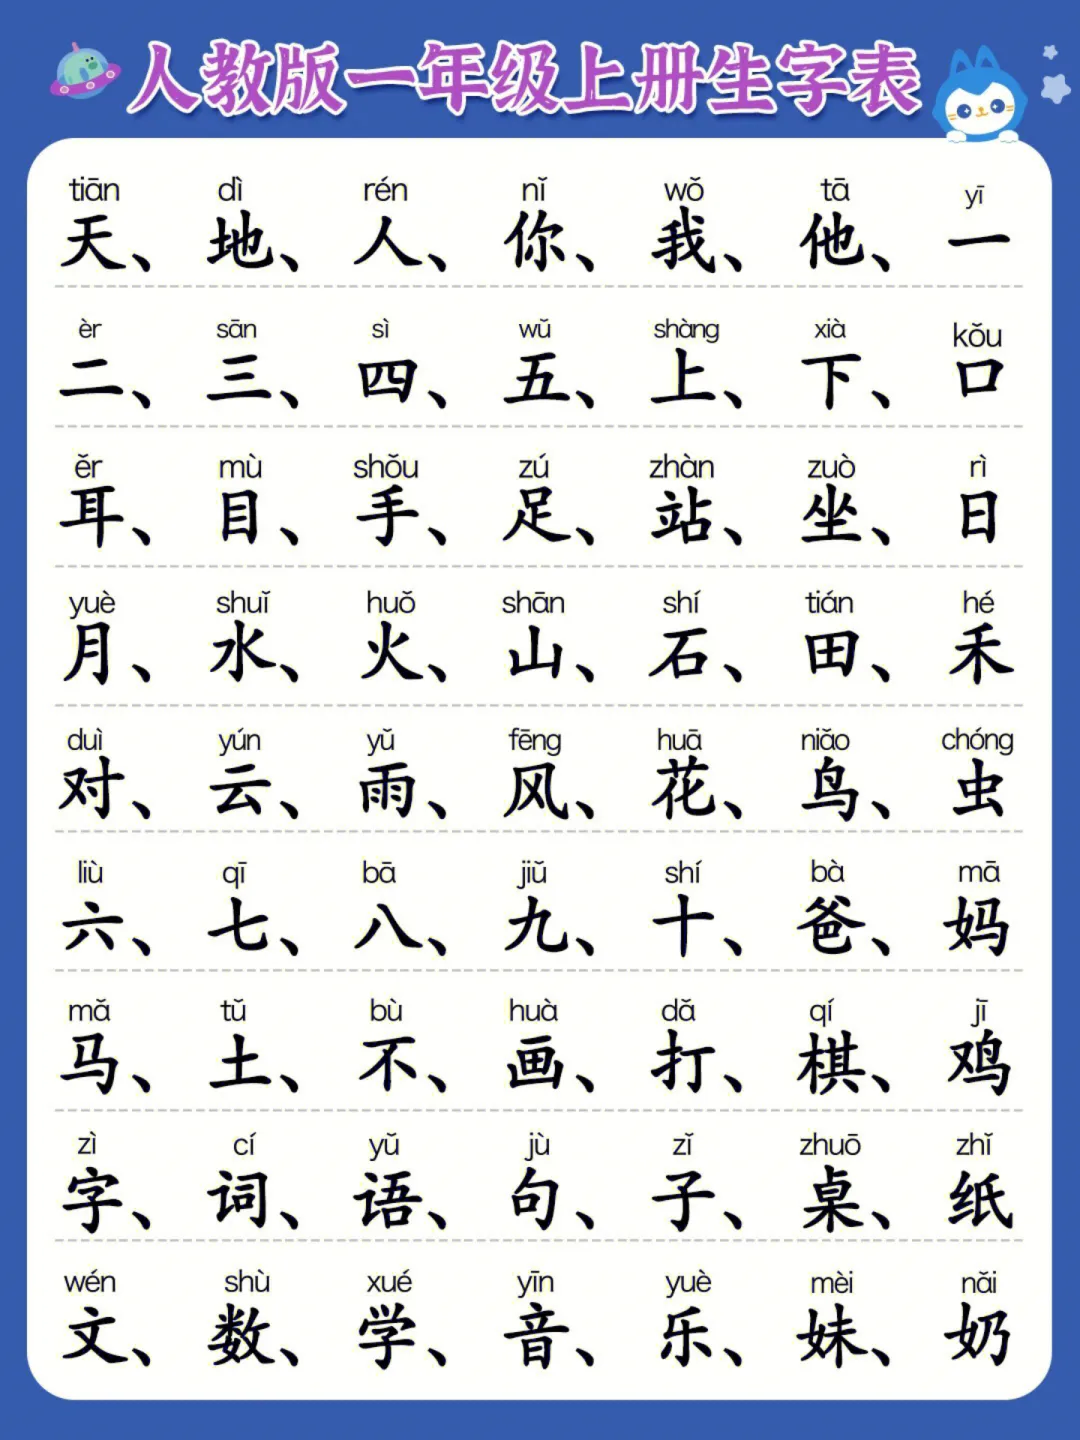 人教版一年级上册生字表
tiān dì rén nǐ wǒ tā yī
天、地、人、你、我、他、一
èr sān sì wǔ shàng xià kǒu
二、三、四、五、上、下、口
ěr mù shǒu zú zhàn zuò rì
耳、目、手、足、站、坐、日
yuè shuǐ huǒ shān shí tián hé
月、水、火、山、石、田、禾
duì yún yǔ fēng huā niǎo chóng
对、云、雨、风、花、鸟、虫
liù qī bā jiǔ shí bà mā
六、七、八、九、十、爸、妈
mǎ tǔ bù huà dǎ qí jī
马、土、不、画、打、棋、鸡
zì cí yǔ jù zǐ zhuō zhǐ
字、词、语、句、子、桌、纸
wén shù xué yīn yuè mèi nǎi
文、数、学、音、乐、妹、奶